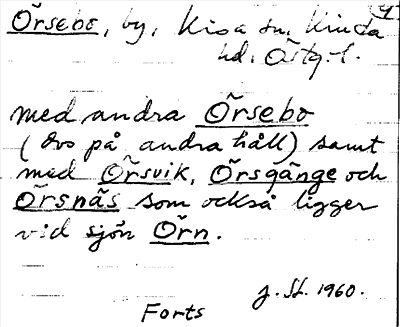 Örsebo, by, Kisa sn, Kinda
hd. Östg.-l.
med andra Örsebo
(dvs på andra håll) samt
med Örsvik, Örsgänge och
Örsnäs som också ligger
vid sjön Örn.
J. St. 1960.
Forts